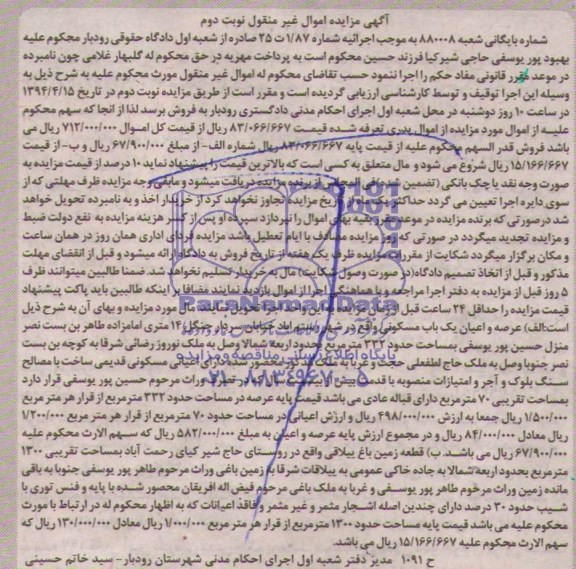 آگهی مزایده اموال غیر منقول نوبت دوم
شماره بایگانی شعبه ۸۸۰۰۰۸ به موجب اجرائیه شماره ۱/۸۷ ت ۲۵ صادره از شعبه اول دادگاه حقوقی رودبار محکوم علیه
بهبود پور یوسفی حاجی شیرکیا فرزند حسین محکوم است به پرداخت مهریه در حق محکوم له گلبهار غلامی چون نامبرده
در موعد مقرر قانونی مفاد حکم را اجرا ننمود حسب تقاضای محکوم له اموال غیر منقول مورث محکوم علیه به شرح ذیل به
وسیله این اجرا توقیف و توسط کارشناسی ارزیابی گردیده است و مقرر است از طریق مزایده نوبت دوم در تاریخ ۱۳۹۴/۴/۱۵
در ساعت ۱۰ روز دوشنبه در محل شعبه اول اجرای احکام مدنی دادگستری رودبار به فروش برسد لذا از آنجا که سهم محکوم
علیه از اموال مورد مزایده از اموال پدری تعرفه شده قیمت ۸۳/۰۶۶/۶۶۷ ریال از قیمت کل اموال ۷۱۲/۰۰۰/۰۰۰ ریال می
باشد فروش قدر السهم محکوم علیه از قیمت پایه ۸۳/۰۶۶/۶۶۷ ریال شماره الف- از مبلغ ۶۷/۹۰۰/۰۰۰ ریال و ب- از قیمت
۱۵/۱۶۶/۶۶۷ ریال شروع می شود و مال متعلق به کسی است که بالاترین قیمت را پیشنهاد نماید ۱۰ درصد از قیمت مزایده به
صورت وجه نقد یا چک بانکی (تضمین شده) فی المجلس از برنده مزایده دریافت میشود و مابقی وجه مزایده ظرف مهلتی که از
سوی دایره اجرا تعیین می گردد حداکثر یکماه از تاریخ مزایده تجاوز نخواهد کرد از خریدار اخذ و به نامبرده تحویل خواهد
شد درصورتی که برنده مزایده در موعد مقرر بقیه بهای اموال را نپردازد سپرده او پس از کسر هزینه مزایده به نفع دولت ضبط
و مزایده تجدید میگردد در صورتی که روز مزایده مصادف با ایام تعطیل باشد مزایده فردای اداری همان روز در همان ساعت
و مکان برگزار میگردد شکایت از مقررات مزایده ظرف یک هفته از تاریخ فروش به دادگاه ارائه میشود و قبل از انقضای مهلت
مذکور و قبل از اتخاذ تصمیم دادگاه(در صورت وصول شکایت) مال به خریدار تسلیم نخواهد شد. ضمنا طالبین میتوانند ظرف
۵ روز قبل از مزایده به دفتر اجرا مراجعه و با هماهنگی اجرا از اموال بازدید نمایند مضافا بر اینکه طالبین باید پاکت پیشنهاد
قیمت مزایده را حداقل ۲۴ ساعت قبل از زمان مزایده به این واحد اجرا تحویل نمایند مال مورد مزایده و بهای آن به شرح ذیل
است:الف) عرصه و اعیان یک باب مسکونی واقع در شهر رستم آباد خیابان سردار جنگل ۱۴ متری امامزاده طاهر بن بست نصر
منزل حسین پور یوسفی بمساحت حدود ۳۳۲ متر مربع بحدود اربعه شمالا وصل به ملک نوروز رضائی شرقا به کوچه بن بست
نصر جنوبا وصل به ملک حاج لطفعلی حجت و غربا به ملک عبد نور محصور شده دارای اعیانی مسکونی قدیمی ساخت با مصالح
سنگ بلوک و آجر و امتیازات منصوبه با قدمت بیش از بیست سال که در تصرف وراث مرحوم حسین پور یوسفی قرار دارد
بمساحت تقریبی ۷۰ مترمربع دارای قباله عادی می باشد قیمت پایه عرصه در مساحت حدود ۳۳۲ مترمربع از قرار هر متر مربع
۱/۵۰۰/۰۰۰ ریال جمعا به ارزش ۴۹۸/۰۰۰/۰۰۰ ریال و ارزش اعیانی در مساحت حدود ۷۰ مترمربع از قرار هر متر مربع ۱/۲۰۰/۰۰۰
ریال معادل ۸۴/۰۰۰/۰۰۰ ریال و در مجموع ارزش پایه عرصه و اعیان به مبلغ ۵۸۲/۰۰۰/۰۰۰ ریال که سهم الارث محکوم علیه
۶۷/۹۰۰/۰۰۰ ریال می باشد. ب) قطعه زمین باغ ییلاقی واقع در روستای حاج شیر کیای رحمت آباد بمساحت تقریبی ۱۳۰۰
مترمربع بحدود اربعه شمالا به جاده خاکی عمومی به ییلاقات شرقا به زمین باغی وراث مرحوم طاهر پور یوسفی جنوبا به باقی
مانده زمین وراث مرحوم طاهر پور یوسفی و غربا به ملک باغی مرحوم فیض اله افریقان محصور شده با پایه و فنس توری با
شیب حدود ۳۰ درصد دارای چندین اصله اشجار مثمر و غیر مثمر و فاقد اعیانات که به اظهار محکوم له در ارتباط با مورث
محکوم علیه می باشد قیمت پایه مساحت حدود ۱۳۰۰ مترمربع از قرار هر متر مربع ۱/۰۰۰/۰۰۰ ریال معادل ۱۳۰/۰۰۰/۰۰۰ ریال که
سهم الارث محکوم علیه ۱۵/۱۶۶/۶۶۷ ریال می باشد.
ح ۱۰۹۱ مدیر دفتر شعبه اول اجرای احکام مدنی شهرستان رودبار- سید خاتم حسینی
ParaNamadData
پایگاه اطلاع رسانی مناقصه و مزایده
۰۲۱-۸۸۳۴۹۶۷۰-۵